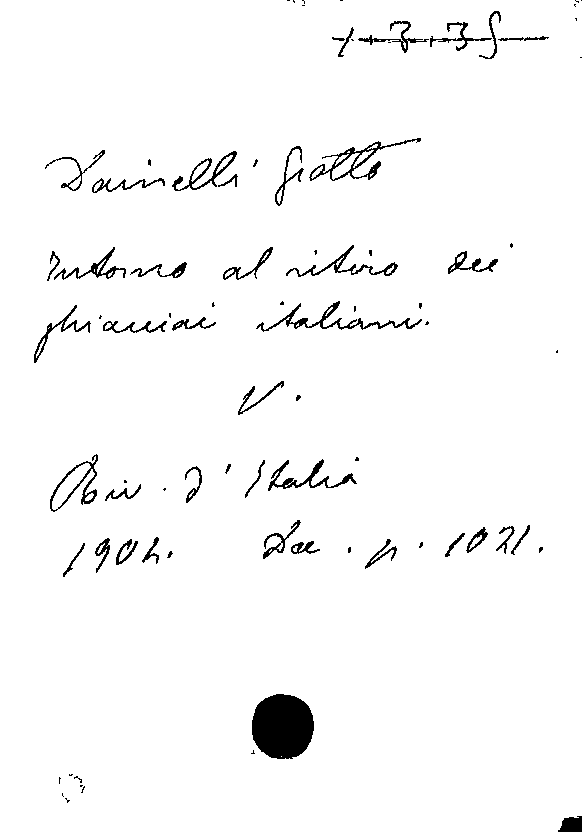 1.3.35
Dainelli Giotto
Intorno al ritiro dei
ghiacciai italiani.
V.
Riv. d'Italia
1904. Dec. p. 1021.